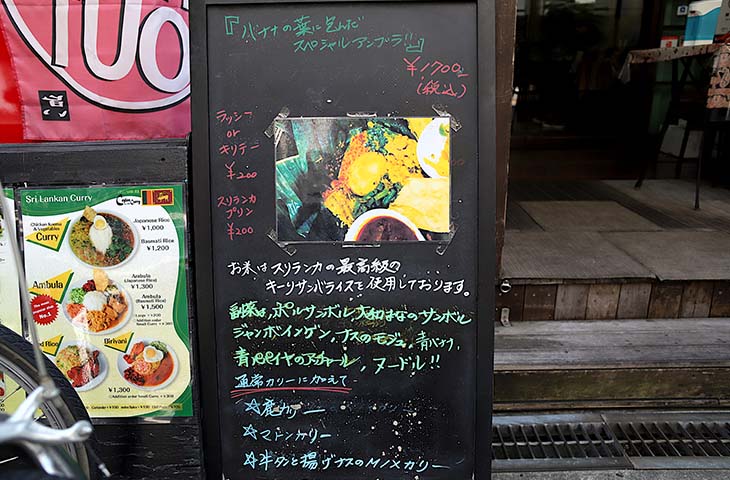 『バナナの葉に包んだ
スペシャルアンブラ!!』
¥1700
(税込)
ラッシー
or
キリテー
¥200
スリランカ
プリン
¥200
お米はスリランカの最高級の
キーリサンバライスを使用しております。
副菜は、ポルサンボル、大和はなのサンボル
ジャンボインゲン、ナスのモジュ、青バナナ、
青パパイヤのアチャール、ヌードル!!
通常カリーに加えて
☆鹿カリー
☆マトンカリー
☆牛タンと揚げナスのMIXカリー
Sri Lankan Curry
Chicken Keema
& Vegetables
Curry
Japanese Rice
¥1,000
Basmati Rice
¥1,200
Ambula
No.1
Ambula
(Japanese Rice)
¥1,300
Ambula
(Basmati Rice)
¥1,500
Biriyani
¥1,300